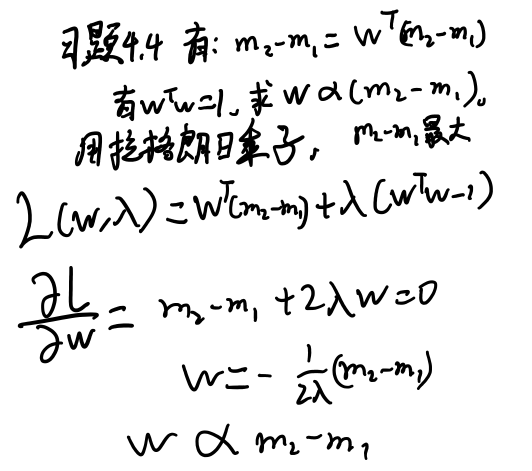 习题4.4 有: m₂-m₁ = wᵀ(m₂-m₁)
有wᵀw=1, 求 w ∝ (m₂-m₁)。
用拉格朗日乘子, m₂-m₁最大
L(w,λ) = wᵀ(m₂-m₁) + λ(wᵀw-1)
∂L/∂w = m₂-m₁ + 2λw = 0
w = - 1/2λ (m₂-m₁)
w ∝ m₂-m₁